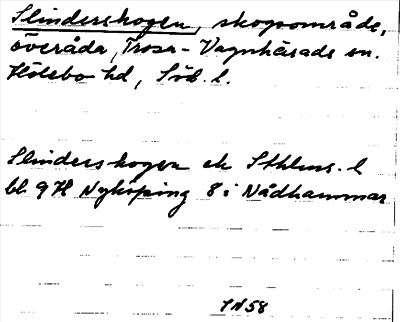 Slinderskogen, skogsområde,
överåda, Trosa-Vagnhärads sn.
Hölebo hd, Söd. l.
Slinderskogen ek Sthlms. l
bl. 9H Nyköping 8i Nådhammar
IN58